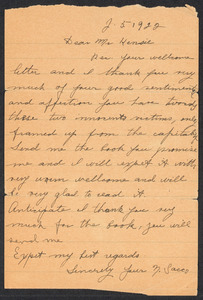 2. 5 1922
Dear Mrs Hensel
Rec your wellcome
letter and I thank you very
much of your good sentiments
and affection you have towards
those two innocents victims, only
framed up from the capitalist
Send me the book you promise
me and I will expect it with
very warm wellcome and will
be very glad to read it.
Anticipate I thank you very
much for the book, you will
send me
Expect my best regards
Sincerely Your N. Sacco